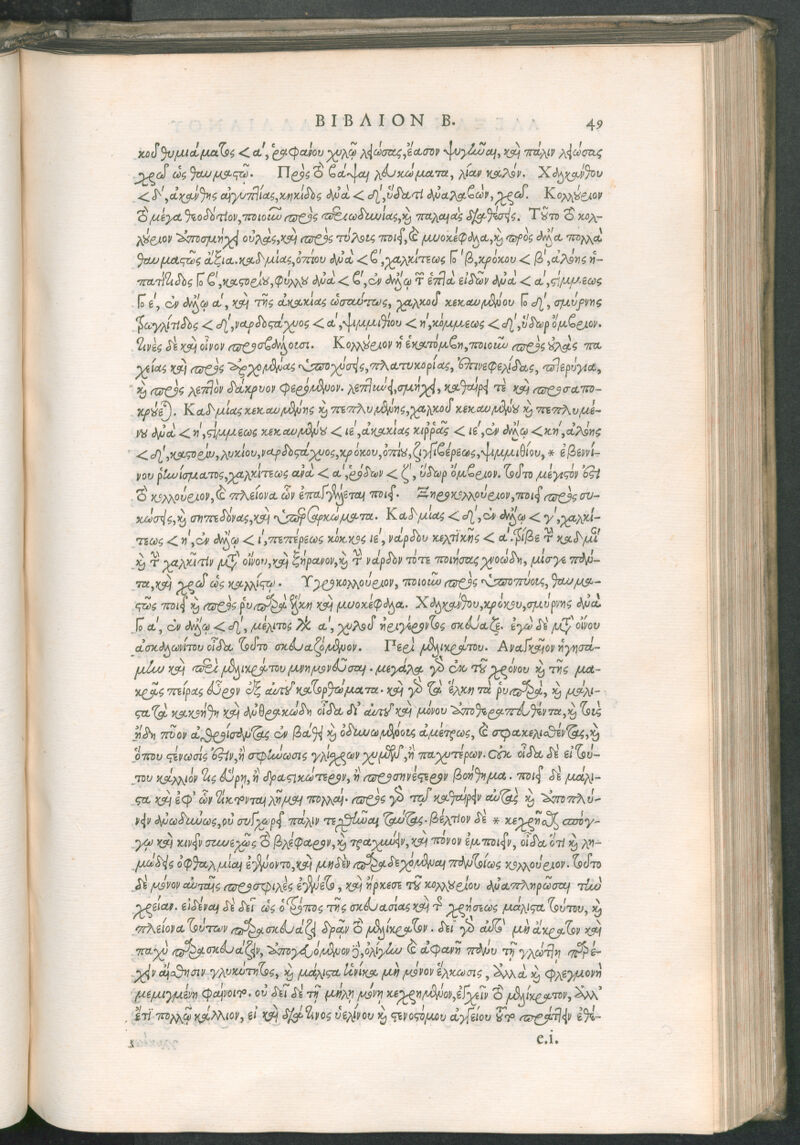 ΒΙΒΛΙΟΝ Β. 49
κοῦ θυμιάματος < α΄, ῥαφανίου χυλῷ λειώσας, ἔασον ψυγῆναι, καὶ πάλιν λειώσας
χρῶ ὡς θαυμαστῷ. Πρὸς τὸ βάψαι λευκώματα, λίαν καλόν. Χαλκάνθου
< δ΄, ἀκάνθης αἰγυπτίας, κηκίδος ἀνὰ < δ΄, ὕδατι ἀναλαβὼν, χρῶ. Κολλύριον
τὸ μέγα θεοδότιον, ποιοῦν πρὸς περιωδυνίας, καὶ παλαιὰς διαθέσεις. Τοῦτο τὸ κολ-
λύριον ἀποσμήχει οὐλὰς, καὶ πρὸς τύλους ποιεῖ, καὶ μυοκέφαλα, καὶ πρὸς ἄλλα πολλὰ
θαυμαστῶς ἄξια. καδμίας, ὀπίου ἀνὰ < β΄, χαλκίτεως β, κρόκου < β΄, ἀλόης ἡ-
πατίτιδος β΄, καστορίου, φύλλου ἀνὰ < β΄, ἐν ἄλλῳ τῶν ἑπτὰ εἰδῶν ἀνὰ < α΄, στίμμεως
ε΄, ἐν ἄλλῳ α΄, καὶ τῆς ἀκακίας ὡσαύτως, χαλκοῦ κεκαυμένου δ΄, σμύρνης
τρωγλίτιδος < δ΄, ναρδοστάχυος < α΄, ψιμμιθίου < η΄, κόμμεως < δ΄, ὕδωρ ὄμβριον.
τινὲς δὲ καὶ οἶνον προσβάλλουσι. Κολλύριον ἡ ἑκατόμβη, ποιοῦν πρὸς οὐλὰς πα
χείας καὶ πρὸς ἀρχομένας ὑποχύσεις, πλατυκορίας, ἐπινεφελίδας, πτερύγια,
καὶ πρὸς λεπτὸν δάκρυον φερόμενον. λεπτύνει, σμήχει, καθαίρει τὲ καὶ προσαπο-
κρούεται. Καδμίας κεκαυμένης καὶ πεπλυμένης, χαλκοῦ κεκαυμένου καὶ πεπλυμέ-
νου ἀνὰ < η΄, στίμμεως κεκαυμένου < ιε΄, ἀκακίας κιρρᾶς < ιε΄, ἐν ἄλλῳ < κη΄, ἀλόης
< δ΄, καστορίου, λυκίου, ναρδοστάχυος, κρόκου, ὀπίου, ζιγγιβέρεως, ψιμμιθίου, * ἐβεννί-
νου ῥινίσματος, χαλκίτεως ἀνὰ < α΄, ῥόδων < ζ΄, ὕδωρ ὄμβριον. τοῦτο μέγιστόν ἐστι
τὸ κολλούριον, καὶ πλείονα ὧν ἐπαγγέλλεται ποιεῖ. Ξηροκολλούριον, ποιεῖ πρὸς συ-
κώσεις, καὶ σηπεδόνας, καὶ ὑπερσαρκώματα. Καδμίας < δ΄, ἐν ἄλλῳ < γ΄, χαλκί-
τεως < η΄, ἐν ἄλλῳ < ι΄, πεπέρεως κόκκους ιε΄, νάρδου κελτικῆς < α΄. τρίβε τὴν καδμίαν
καὶ τὴν χαλκῖτιν μετ' οἴνου, καὶ ξήρανον, καὶ τὴν νάρδον τότε ποιήσας χνοώδη, μίσγε πάν-
τα, καὶ χρῶ ὡς καλλίστῳ. Ὑγροκολλούριον, ποιοῦν πρὸς ὑποπύους, θαυμα-
στῶς ποιεῖ καὶ πρὸς ῥυπαρὰ ἕλκη καὶ μυοκέφαλα. Χαλκάνθου, κρόκου, σμύρνης ἀνὰ
α΄, ἐν ἄλλῳ < δ΄, μέλιτος α΄, χυλοῦ ἠριγέροντος σκεύαζε. ἐγὼ δὲ μετ' οἴνου
ἀσκαλωνίτου οἶδα τοῦτο σκευαζόμενον. Περὶ μελικράτου. Ἀναγκαῖον ἡγησά-
μην καὶ περὶ μελικράτου μνημονεῦσαι. μεγάλα γὰρ ἐκ τοῦ χρόνου καὶ τῆς μα-
κρᾶς πείρας εὗρον ἐξ αὐτοῦ κατορθώματα. καὶ γὰρ τὰ ἕλκη τὰ ῥυπαρὰ, καὶ μάλι-
στα τὰ κακοήθη καὶ ἀνθρακώδη οἶδα δι' αὐτοῦ καὶ μόνου ἀποθεραπευθέντα, καὶ τοῖς
ἤδη πῦον ἀθροίσασιν ἐν βάθει καὶ ὀδυνωμένοις ἀμέτρως, καὶ σφακελισθέντας, καὶ
ὅπου στένωσίς ἐστιν, ἢ σφήνωσις γλίσχρων χυμῶν, ἢ παχυτέρων. Οὐκ οἶδα δὲ εἰ τού-
του κάλλιόν τις εὕρῃ, ἢ δραστικώτερον, ἢ προσηνέστερον βοήθημα. ποιεῖ δὲ μάλι-
στα καὶ ἐφ' ὧν τίκτονται λῆμαι πολλαί. πρὸς γὰρ τῷ καθαίρειν αὐτὰς καὶ ἀποπλύ-
νειν ἀνωδύνως, οὐ συγχωρεῖ πάλιν τεχθῆναι ταύτας. βέλτιον δὲ * κεχρῆσθαι σπόγ-
γῳ καὶ κινεῖν συνεχῶς τὸ βλέφαρον, καὶ τραχύνειν, καὶ πόνον ἐμποιεῖν, οἶδα ὅτι καὶ λη-
μώδεις ὀφθαλμίαι ἐγένοντο, καὶ μηδὲν παραδεχόμεναι παντοίως κολλούριον. τοῦτο
δὲ μόνον αὐταῖς προσφιλὲς ἐγένετο, καὶ ἤρκεσε τοῦ κολλυρίου ἀναπληρῶσαι τὴν
χρείαν. εἰδέναι δὲ δεῖ ὡς ὁ τρόπος τῆς σκευασίας καὶ τῆς χρήσεως μάλιστα τούτου, καὶ
πλείονα τούτων παρασκευάζει δρᾶν τὸ μελίκρατον. δεῖ γὰρ αὐτὸ μὴ ἄκρατον καὶ
παχὺ παρασκευάζειν, ἀπογευόμενον δὲ, ὀλίγην καὶ ἀφανῆ πάνυ τῇ γλώττῃ παρέ-
χειν αἴσθησιν γλυκύτητος, καὶ μάλιστα ἡνίκα μὴ μόνον ἕλκωσις, ἀλλὰ καὶ φλεγμονὴ
μεμιγμένη φαίνοιτο. οὐ δεῖ δὲ τῇ μήλῃ μόνῃ κεχρημένον, ἐγχεῖν τὸ μελίκρατον, ἀλλ'
ἔτι πολλῷ κάλλιον, εἰ καὶ διά τινος ὑελίνου καὶ στενοστόμου ἀγγείου τοῦτο πράττειν ἐθέ-
e.i.